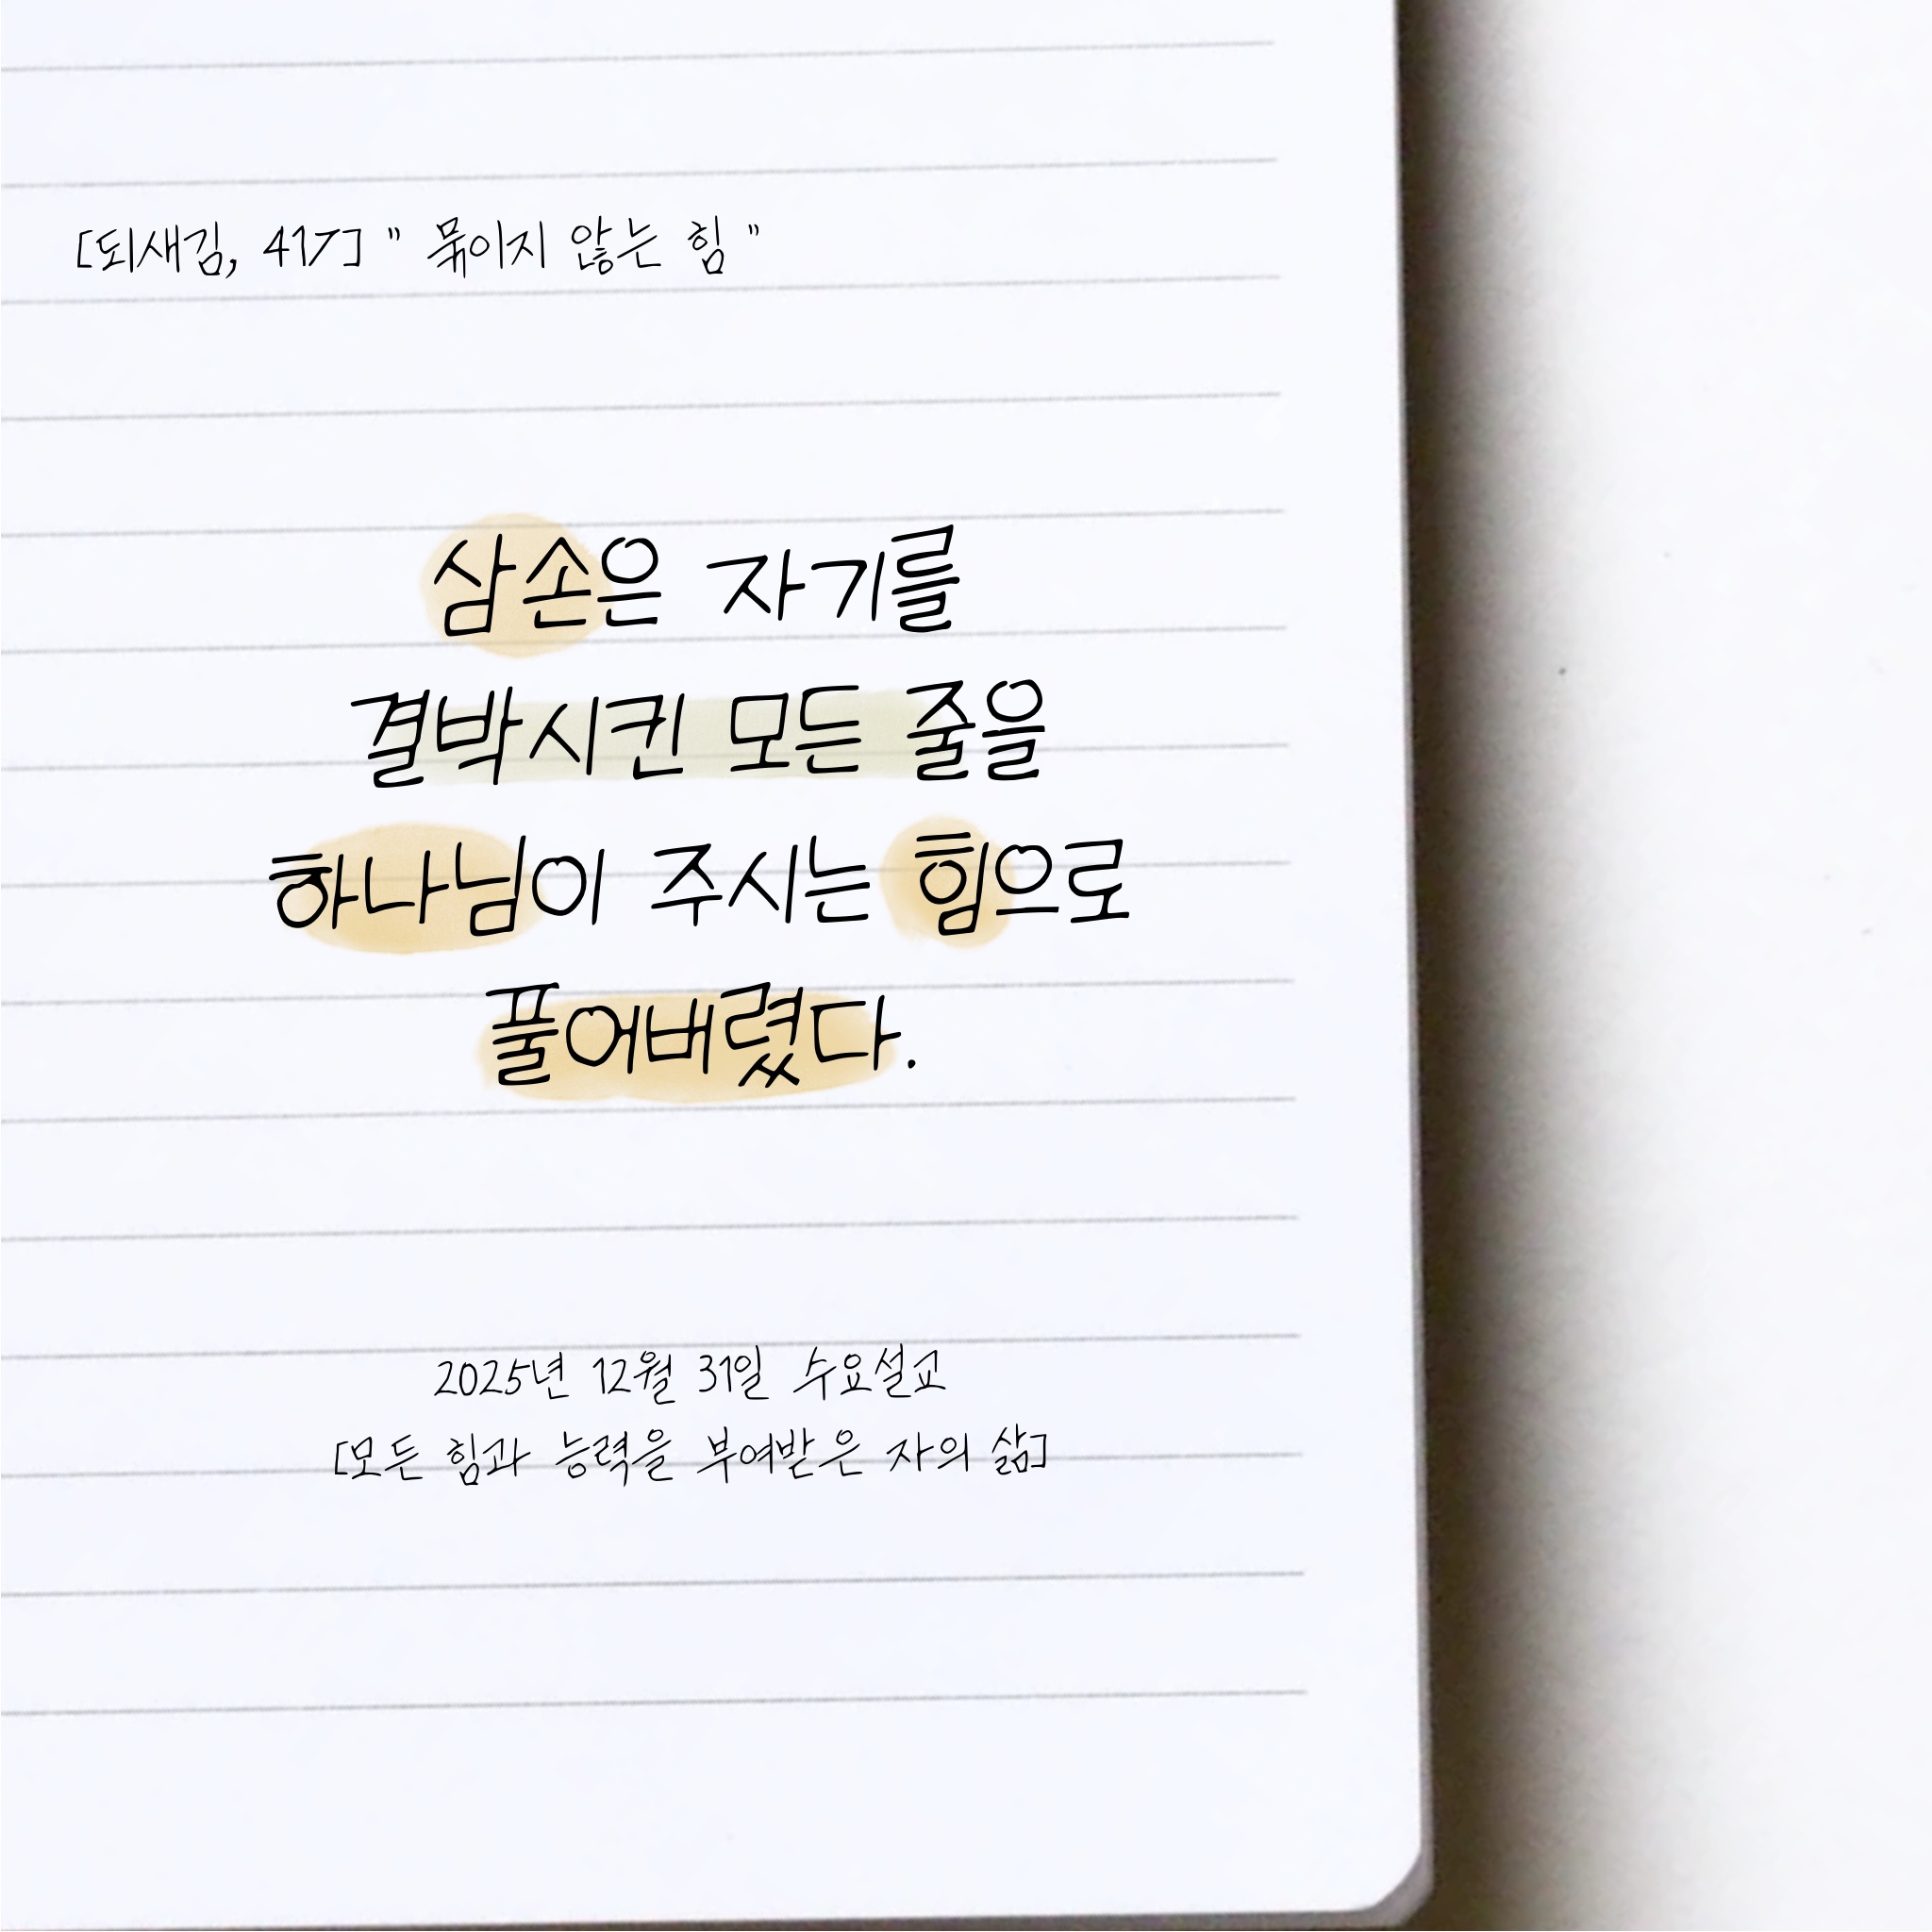 [되새김, 417] " 묶이지 않는 힘 "
삼손은 자기를
결박시킨 모든 줄을
하나님이 주시는 힘으로
풀어버렸다.
2025년 12월 31일 수요설교
[모든 힘과 능력을 부여받은 자의 삶]